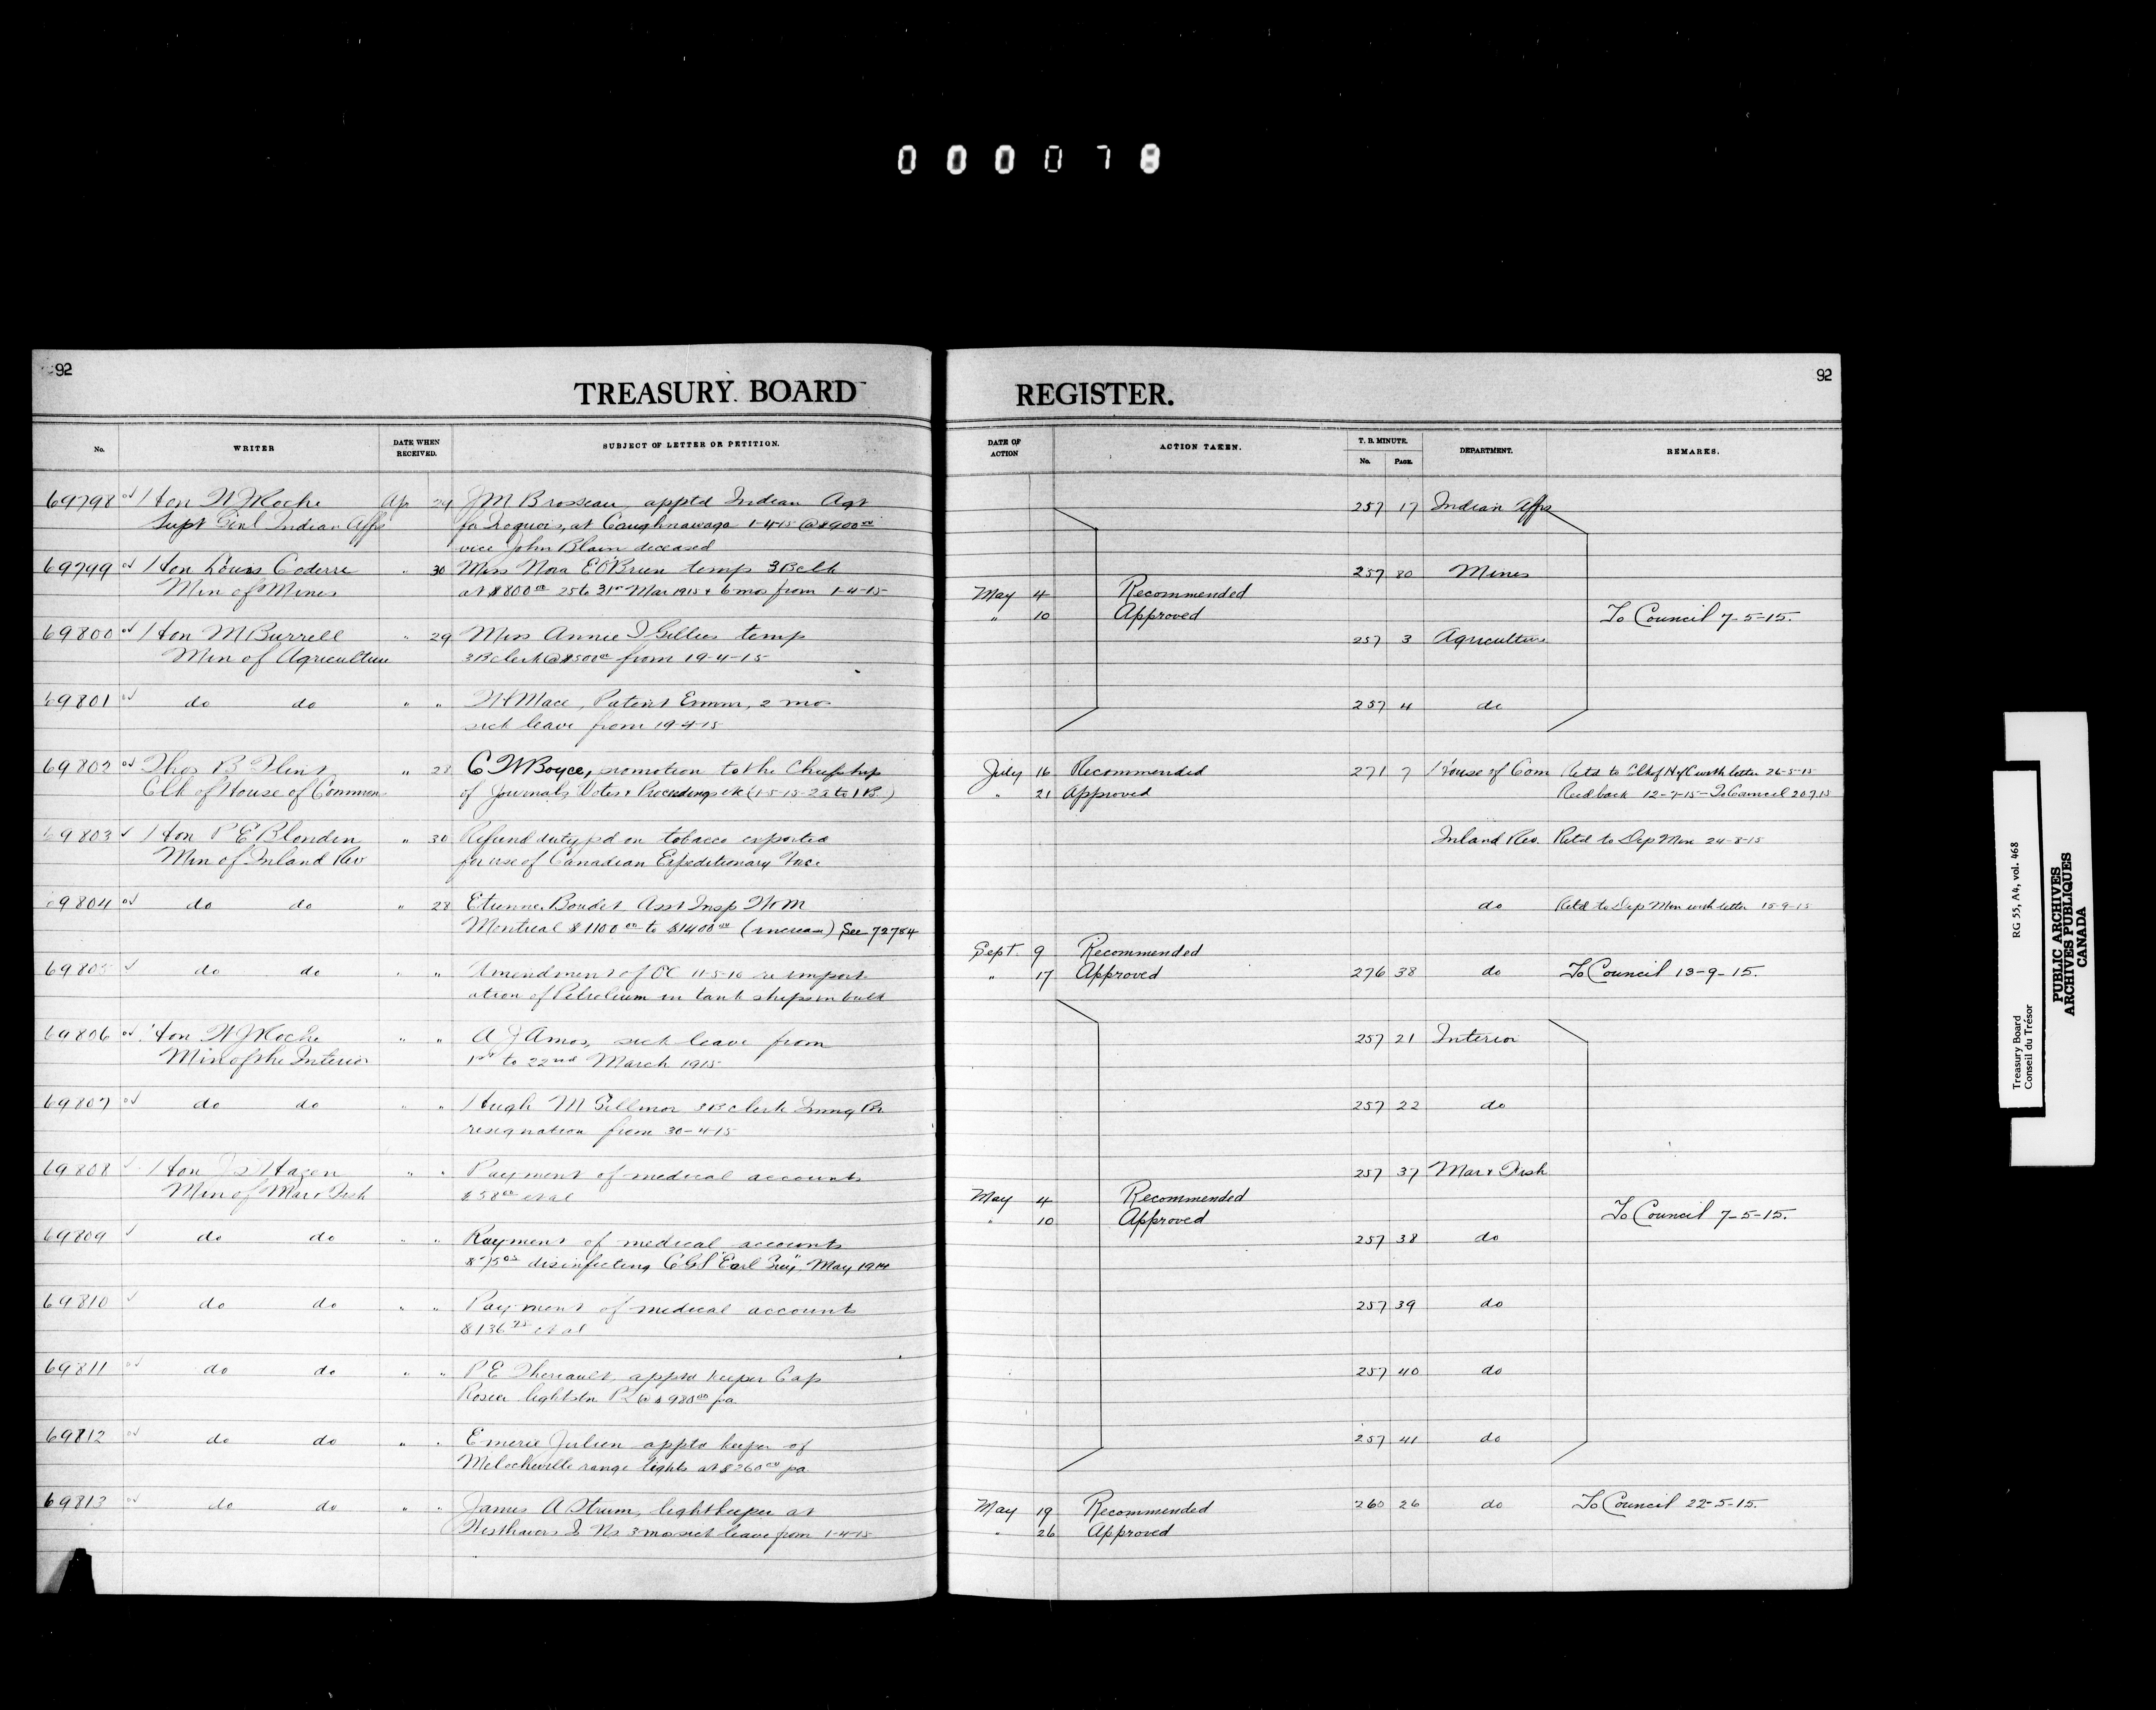 000078
92
TREASURY BOARD
REGISTER.
92
No.
WRITER
DATE WHEN RECEIVED.
SUBJECT OF LETTER OR PETITION.
DATE OF ACTION
ACTION TAKEN.
T. B. MINUTE.
No.
PAGE.
DEPARTMENT.
REMARKS.
69798 Hon W J Roche Ap 29 J M Brosseau apptd Indian Agt 257 17 Indian Affrs
Supt Genl Indian Affs for Iroquois, at Caughnawaga 1-4-15 @ $900 00
vice John Blain deceased
69799 Hon Louis Coderre " 30 Miss Nora E O'Brien temp 3B clk 257 80 Mines
Min of Mines at $800 00 25 to 31st Mar 1915 & 6 mos from 1-4-15 May 4 Recommended
" 10 Approved To Council 7-5-15.
69800 Hon M Burrell " 29 Miss Annie I Gillies temp 257 3 Agriculture
Min of Agriculture 3B clerk @ $500 00 from 19-4-15
69801 do do " " Mace, Patent Exmnr, 2 mos 257 4 do
sick leave from 19-4-15
69802 Thos B Flint " 28 C W Boyce, promotion to the Chiefship July 16 Recommended 271 7 House of Com Retd to Clk of H of C with letter 26-5-15
Clk of House of Common of Journals Votes & Proceedings etc (1-5-15-2A to 1B.) " 21 Approved Recd back 12-7-15 - To Council 20.7.15
69803 Hon P E Blondin " 30 Refund duty pd on tobacco exported Inland Rev. Retd to Dep Min 24-8-15
Min of Inland Rev for use of Canadian Expeditionary Force
69804 do do " 28 Etienne Boudet Asst Insp W&M do Retd to Dep Min with letter 15-9-15
Montreal $1100 00 to $1400 00 (increase) See 72784
Sept. 9 Recommended
69805 do do " " Amendment of OC 11-5-10 re import " 17 Approved 276 38 do To Council 13-9-15.
ation of Petroleum in tank ships in bulk
69806 Hon W J Roche " " A J Amos, sick leave from 257 21 Interior
Min of the Interior 1st to 22nd March 1915
69807 do do " " Hugh M Gillmor 3B clerk Immg Br 257 22 do
resignation from 30-4-15
69808 Hon J D Hazen " " Payment of medical accounts 257 37 Mar & Fish
Min of Mar & Fish $58 00 et al May 4 Recommended
" 10 Approved To Council 7-5-15.
69809 do do " " Payment of medical accounts 257 38 do
$75 00 disinfecting CGS "Earl Grey" May 1914
69810 do do " " Payment of medical accounts 257 39 do
$136 25 et al
69811 do do " " P E Theriault apptd keeper Cap 257 40 do
Rosier lightstn PQ @ $980 00 pa
69812 do do " " Emerie Julien apptd keeper of 257 41 do
Melocheville range lights at $260 00 pa
69813 do do " " James A Strum, lightkeeper at May 19 Recommended 260 26 do To Council 22-5-15.
Westhavers I Ns 3 mos sick leave from 1-4-15 " 26 Approved
Treasury Board RG 55, A4, vol. 468
Conseil du Trésor
PUBLIC ARCHIVES
ARCHIVES PUBLIQUES
CANADA